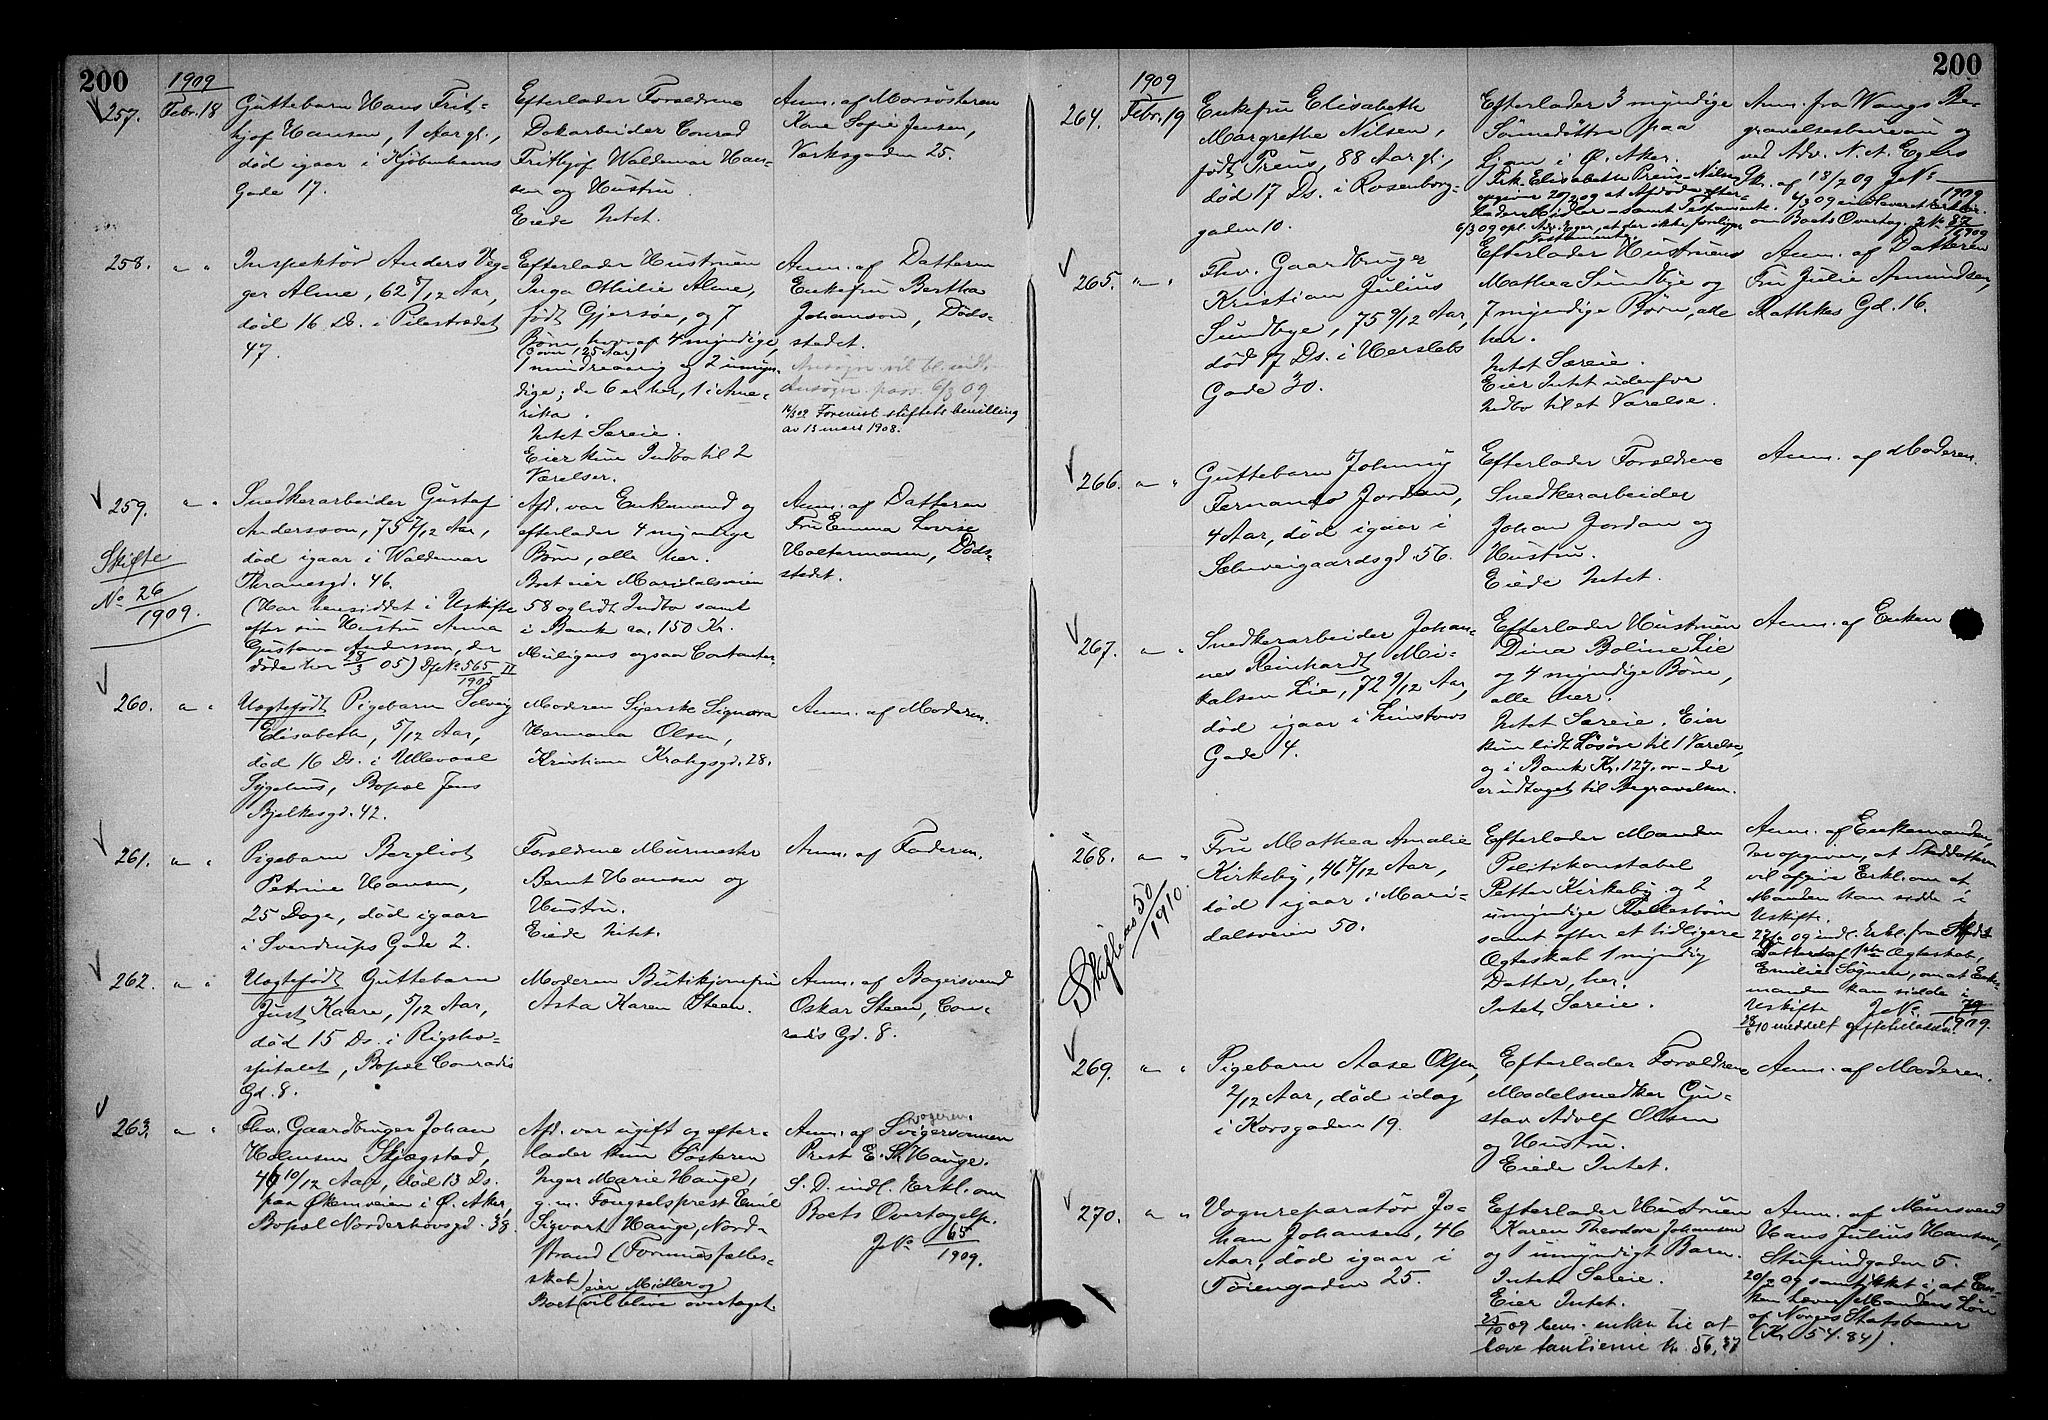 200
1909
257.
Febr. 18
Guttebarn Hans Frit-
hjof Hansen, 1 Aar gl.,
død igaar i Kjøbenhavns
Gade 17.
Efterlader Forældrene
Dokarbeider Conrad
Frithjof Waldemar Han-
sen og Hustru
Eiede Intet.
Anm. af Morsøsteren
Kone Sofie Jensen,
Verksgaden 25.
258.
" "
Inspektør Anders Veg-
ger Alme, 62 5/12 Aar,
død 16 Ds. i Pilestrædet
47.
Efterlader Hustruen
Inga Othilie Alme,
født Gjersøe, og 7
Børn, hvoraf 4 myndige,
(over 125 Aar)
1 mindreaarig og 2 umyn-
dige; de 6 er her, 1 i Ame-
rika.
Intet Særeie.
Eier kun Indbo til 2
Værelser.
Anm. af Datteren
Enkefru Bertha
Johanson, Døds-
stedet.
Ansøgn. vil bl. indl.
Ansøgn. paav. 6/3 09
Forevist stiftets bevilling
av 13 mars 1908.
259.
" "
Skifte
No 26
1909.
Snedkerarbeider Gustaf
Andersson, 75 7/12 Aar,
død igaar i Waldemar
Thranesgd. 46.
(Har hensiddet i Uskifte
efter sin Hustru Anna
Gustava Andersson, der
døde her 28/3 05) No 565 II
1905
Afd. var Enkemand og
efterlader 4 myndige
Børn, alle her.
Boet eier Maridalsveien
58 og lidt Indbo samt
i Bank ca. 150 Kr.
Muligens ogsaa Contanter.
Anm. af Datteren
Fru Emma Lovise
Holtermann, Døds-
stedet.
260.
" "
Uægtefødt Pigebarn Solveig
Elisabeth, 5/12 Aar,
død 16 Ds. i Ullevaal
Sygehus, Bopæl Jens
Bjelkesgd. 42.
Moderen Syerske Signora
Hermana Olsen,
Kristian Krohgsgd. 28.
Anm. af Moderen.
261.
" "
Pigebarn Bergliot
Petrine Hansen,
25 Dage, død igaar
i Sverdrups Gade 2.
Forældrene Murmester
Bernt Hansen og
Hustru.
Eiede Intet.
Anm. af Faderen.
262.
" "
Uægtefødt Guttebarn
Just Kaare, 5/12 Aar,
død 15 Ds. i Rigsho-
spitalet, Bopæl Conradis
Gd. 8.
Moderen Butikjomfru
Asta Karen Steen.
Anm. af Bagersvend
Oskar Steen, Con-
radis Gd. 8.
263.
" "
Fhv. Gaardbruger Johan
Holmsen Skjægstad,
46 10/12 Aar, død 13 Ds.
paa Økernveien i Ø. Aker,
Bopæl Norderhovsgd. 38
Afd. var ugift og efter-
lader kun Søsteren
Inger Marie Hauge,
g.m. Fængselsprest Emil
Sigvart Hauge, Nord-
strand (Formuesfælles-
skab) eier Midler og
Boet vil blive overtaget.
vogeren.
Anm. af Svigersønnen
Prest E. S. Hauge.
S. D. indl. Erkl. om
Boets Overtagelse.
J No 65
1909.
200
1909
264.
Febr. 19
Enkefru Elisabeth
Margrethe Nilsen,
født Preus, 88 Aar gl.,
død 17 Ds. i Rosenborg-
gaden 10.
Efterlader 3 myndige
Sønnedøttre paa
Ljan i Ø. Aker.
Frk. Elisabeth Preus-Nilsen
opgiver 20/2 09 at Afdøde efter-
lader Midler samt Testamente.
6/3 09 opl. Adv. Eger, at der ikke foreligger
Testamente.
Anm. fra Wangs Be-
gravelsesbureau og
ved Adv. N. A. Egers
Skr. af 18/2 09 J No
1909
4/3 09 indleveret Erklær.
om Boets Overtag. J No 87
1909
265.
" "
Fhv. Gaardbruger
Kristian Julius
Sundbye, 75 9/12 Aar,
død 17 Ds. i Herslebs
Gade 30.
Efterlader Hustruen
Mathea Sundbye og
7 myndige Børn, alle
her.
Intet Særeie.
Eier Intet udenfor
Indbo til et Værelse.
Anm. af Datteren
Fru Julie Amundsen,
Rathkes Gd. 16.
266.
" "
Guttebarn Johnny
Fernando Jordan,
4 Aar, død igaar i
Sølvveigaardsgd. 56.
Efterlader Forældrene
Snedkerarbeider
Johan Jordan og
Hustru.
Eiede Intet.
Anm. af Moderen.
267.
" "
Snedkerarbeider Johan-
nes Reinhardt Mi-
kalsen Lie, 72 9/12 Aar,
død igaar i Linstows
Gade 4.
Efterlader Hustruen
Dina Boline Lie
og 4 myndige Børn,
alle her.
Intet Særeie. Eier
kun lidt Løsøre til 1 Værelse,
og i Bank Kr. 127.00 – der
er udtaget til Begravelsen.
Anm. af Enken
268.
" "
50
1910.
Fru Mathea Amalie
Kirkeby, 46 7/12 Aar,
død igaar i Mari-
dalsveien 50.
Efterlader Manden
Politikonstabel
Petter Kirkeby og 2
umyndige Fællesbørn
samt efter et tidligere
Ægteskab 1 myndig
Datter, her.
Intet Særeie.
Anm. af Enkemanden,
der opgiver, at Steddatteren
vil afgive Erkl. om at
Manden kan sidde i
Uskifte.
09 indl. Erkl. fra Afdøds
Datter af 1ste Ægteskab,
Emilie Sognen, om at Enke-
manden kan sidde i
Uskifte J No 79
1909.
28/6 10 meddelt giftetilladelse.
269.
" "
Pigebarn Aase Olsen,
2/12 Aar, død idag
i Korsgaden 19.
Efterlader Forældrene
Modelsnedker Gu-
stav Adolf Olsen
og Hustru.
Eiede Intet.
Anm. af Moderen.
270.
" "
Vognreparatør Jo-
han Johansen, 46
Aar, død igaar i
Tøiengaden 25.
Efterlader Hustruen
Karen Theodora Johansen
og 1 umyndigt Barn.
Intet Særeie.
Eier Intet.
09 bev. enken til at
hæve tantieme kr. 56,37
Anm. af Mursvend
Hans Julius Hansen,
Stupindgaden 5.
20/2 09 samtykket i, at En-
ken hæver Mandens Løn
af Norges Statsbaner
(Kr. 54.84).